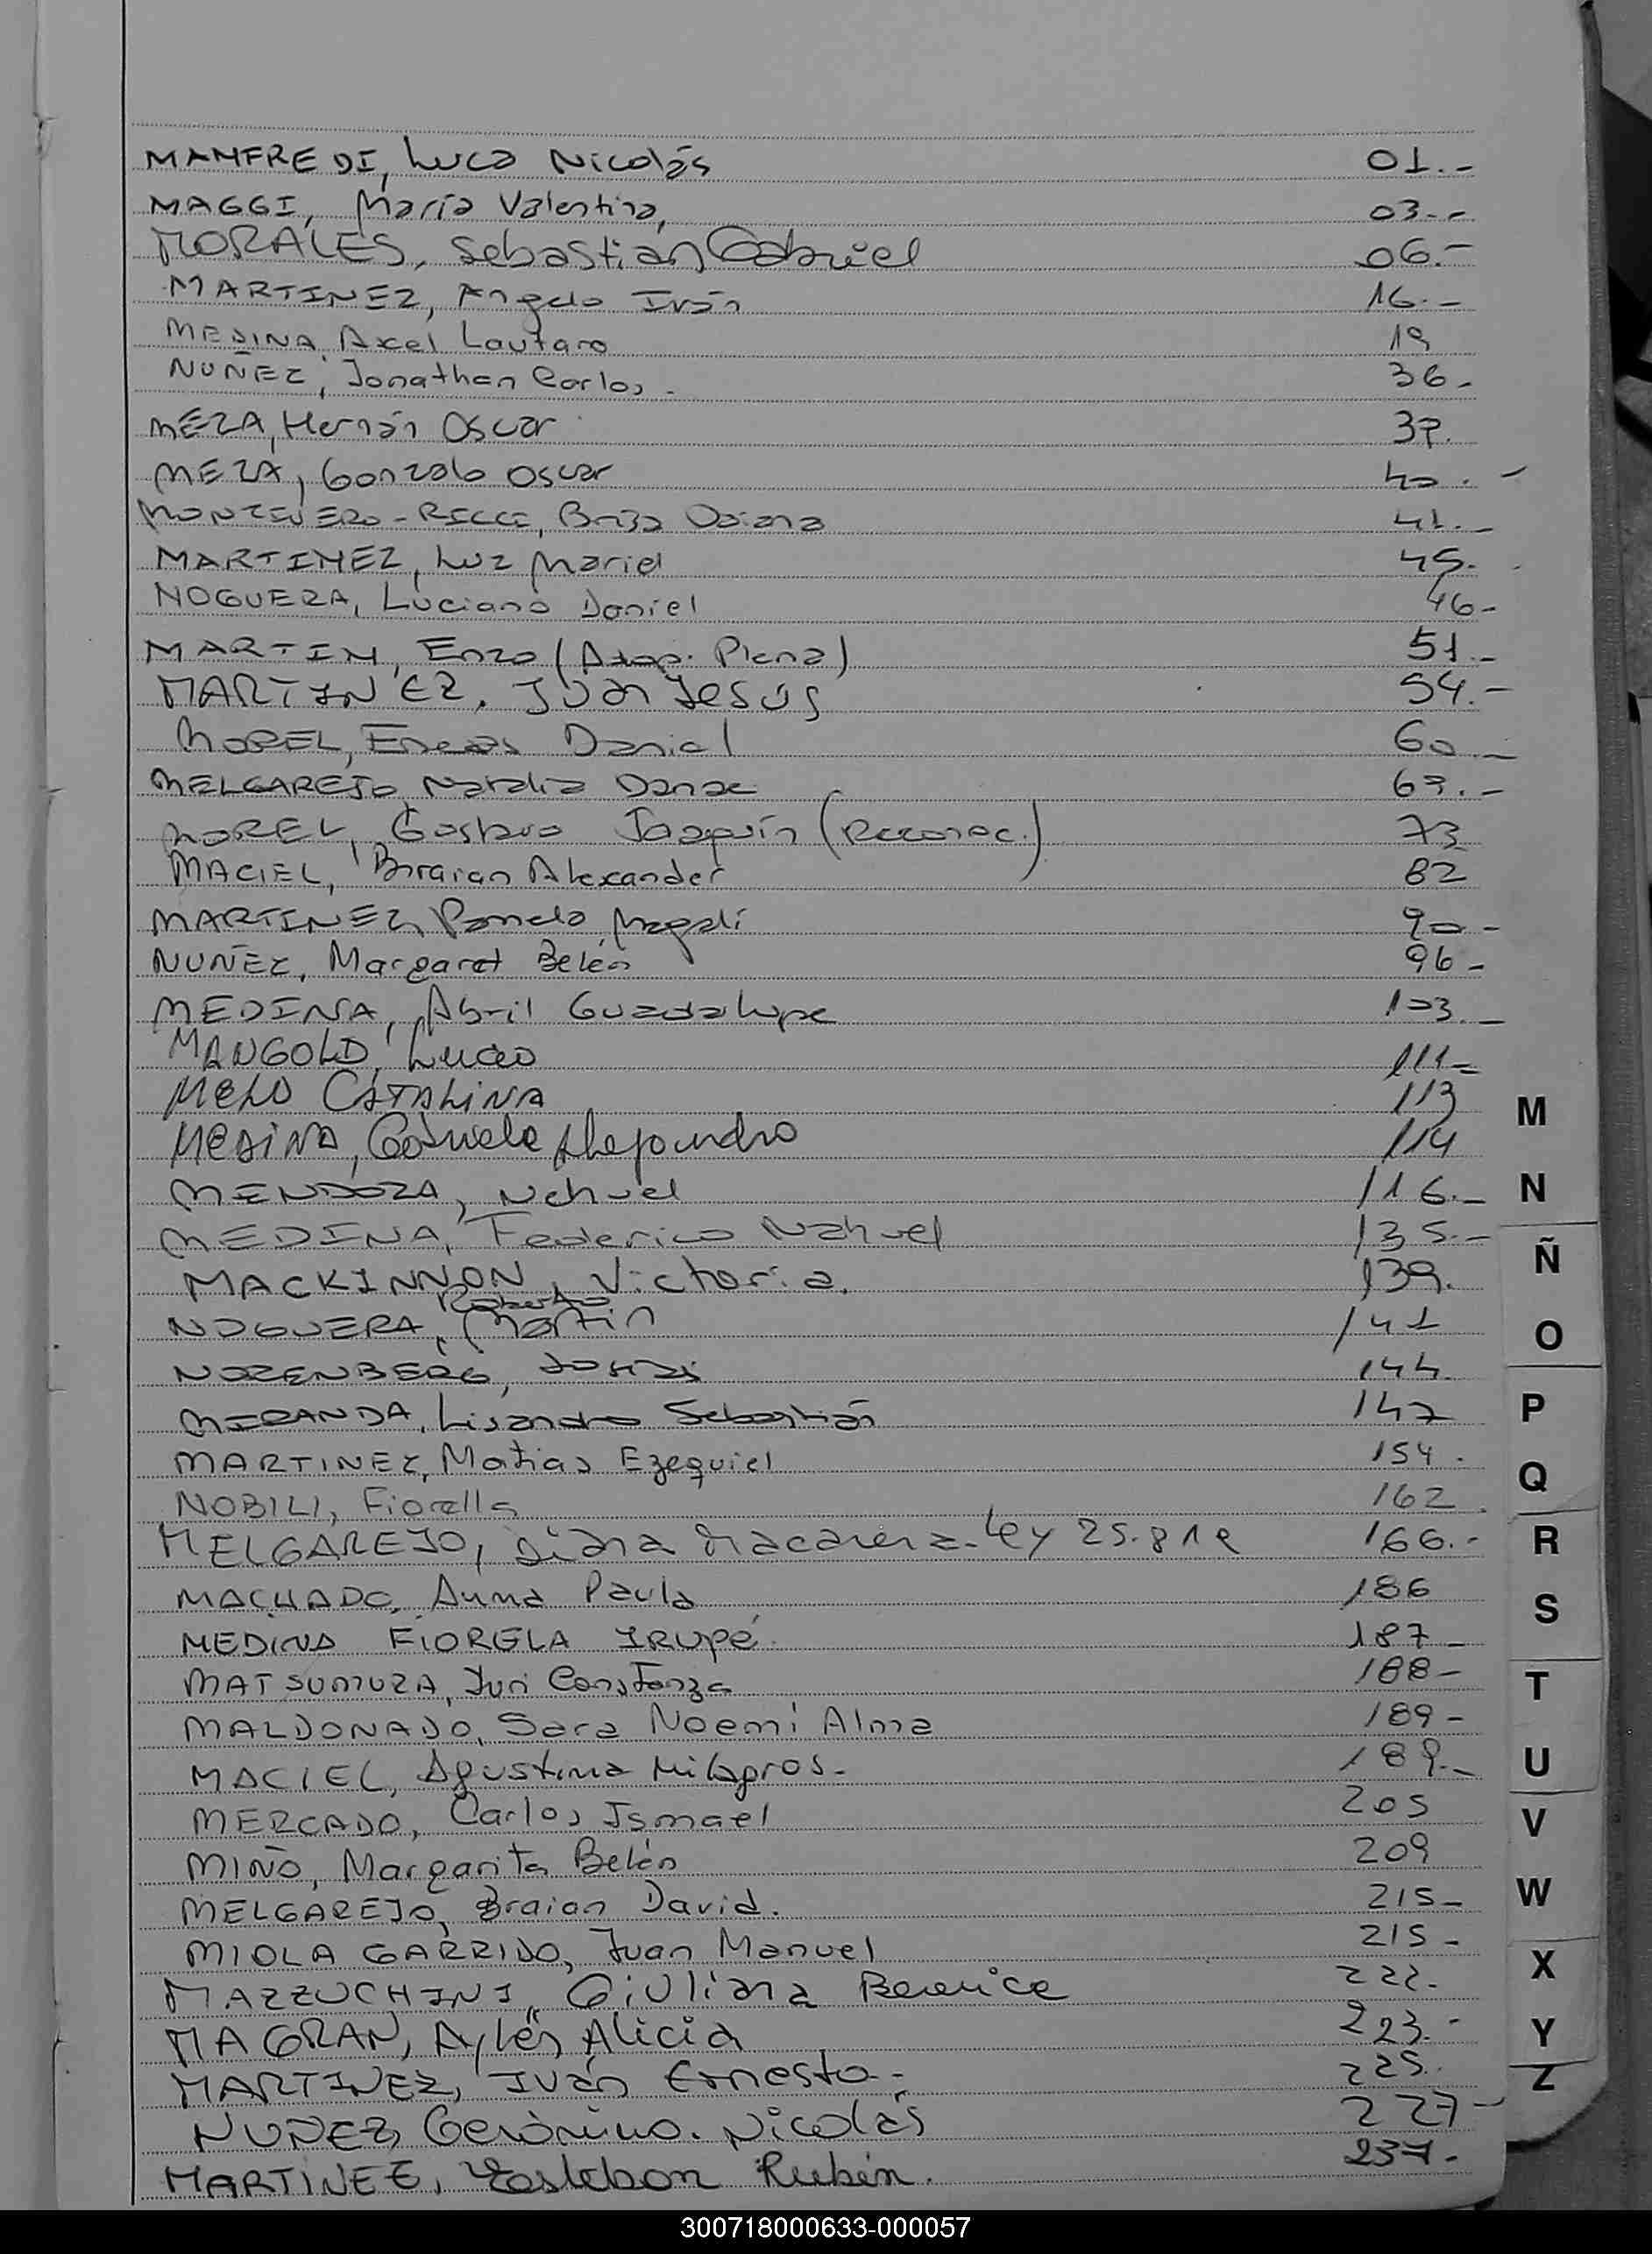 MANFREDI, Luca Nicolás 01.-
MAGGI, María Valentina, 03.-
MORALES, Sebastián Gabriel 06.-
MARTINEZ, Angelo Iván 16.-
MEDINA, Axel Lautaro 19
NUÑEZ, Jonathan Carlos. 36.
MEZA, Hernán Oscar 37.
MEZA, Gonzalo Oscar 40.-
MONTENERO-RICCI, Brisa Daiana 41.-
MARTINEZ, Luz Mariel 45.
NOGUERA, Luciano Daniel 46-
MARTIN, Enzo (Adop. Plena) 51.-
MARTINEZ, Juan Jesús 54.-
MOREL, Eneas Daniel 60.-
MELGAREJO, Natalia Danae 67.-
MOREL, Gustavo Joaquín (Reconoc.) 73
MACIEL, Braian Alexander 82
MARTINEZ, Pamela Magalí 90-
NUÑEZ, Margaret Belén 96-
MEDINA, Abril Guadalupe 103.-
MANGOLD, Lucas 111=
MELO CATALINA 113
MEDINA, Alejandro 114
MENDOZA, Nehuel 116.-
MEDINA, Federico Nahuel 135.-
MACKINNON, Victoria. 139.
Roberto
NOGUERA, Martín 141
NORENBERG, 144.
MIRANDA, Lisandro Sebastián 147
MARTINEZ, Matias Ezequiel 154.
NOBILI, Fiorella 162.
MELGAREJO, Diana Macarena-Ley 25.819 166.-
MACHADO, Anna Paula 186
MEDINA FIORELA IRUPÉ. 187-
MATSUMURA, Yuri Constanza 188-
MALDONADO, Sara Noemí Alma 189-
MACIEL, Agustina Milagros- 189.-
MERCADO, Carlos Ismael 205
MIÑO, Margarita Belén 209
MELGAREJO, Braian David. 215-
MIOLA GARRIDO, Juan Manuel 215-
MAZZUCHINI, Giuliana Berenice 222.
MAGRAN, Aylén Alicia 223.-
MARTINEZ, Iván Ernesto.- 225.
NUÑEZ, Gerónimo. Nicolás 227-
MARTINEZ, Rubén. 237.-
M
N
Ñ
O
P
Q
R
S
T
U
V
W
X
Y
Z
300718000633-000057